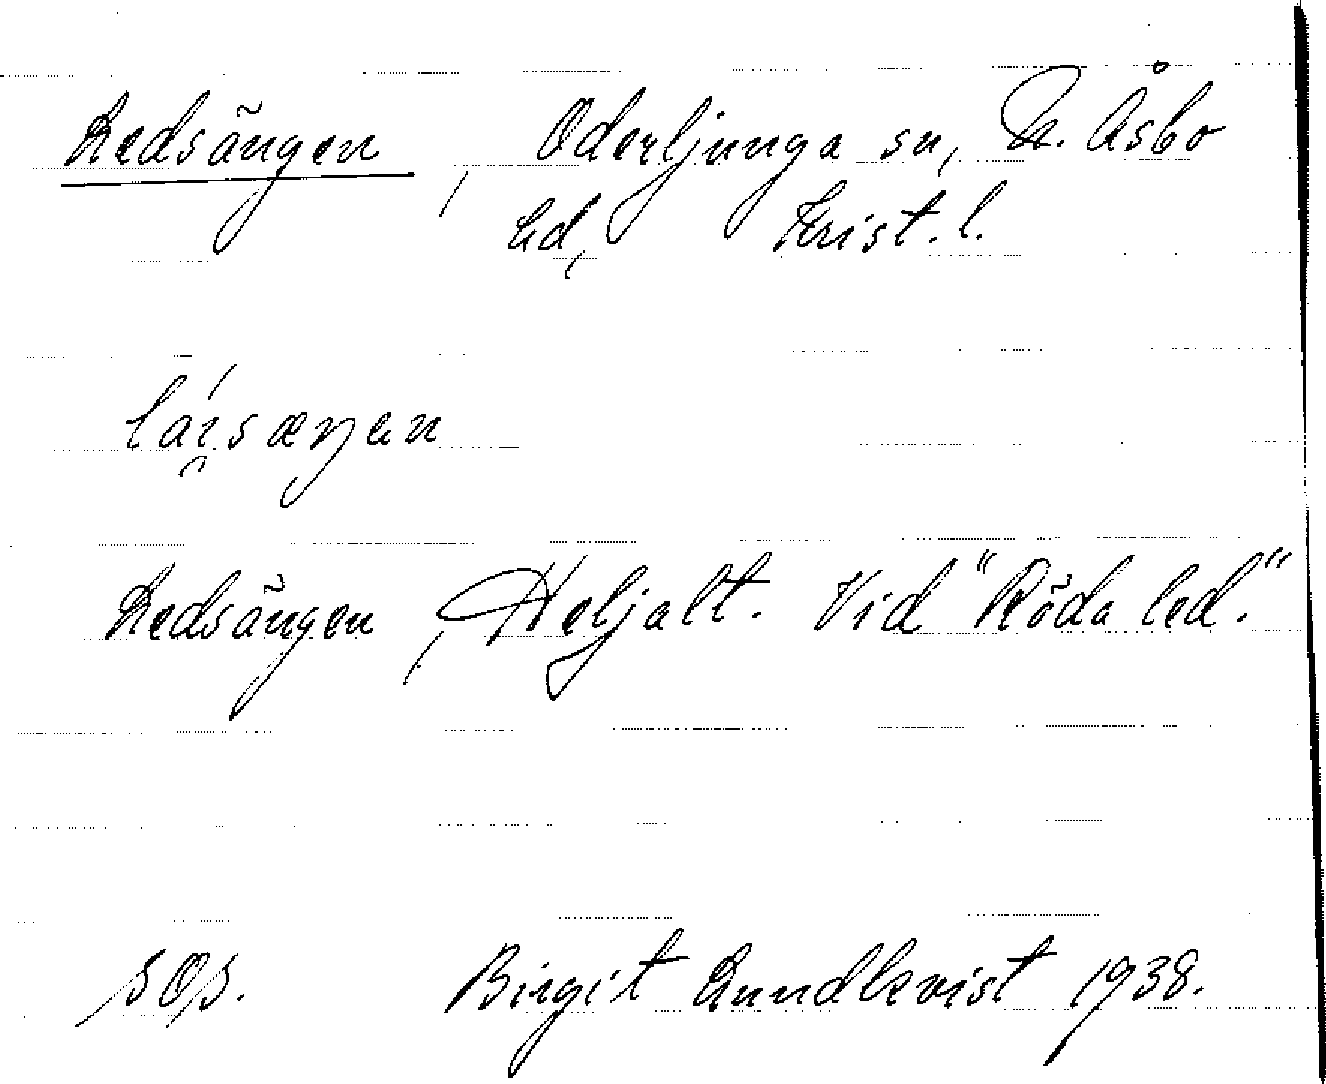 Ledsängen, Oderljunga sn, N. Åsbo
hd, Krist. l.
lái̯sæŋen
Ledsängen, Heljalt. Vid "Röda led."
Birgit Lundkvist 1938.